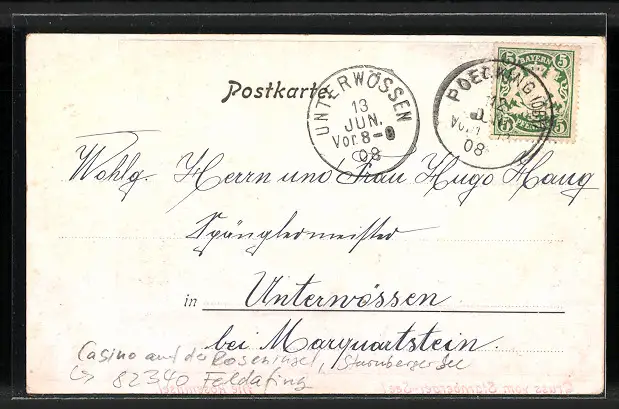 Postkarte.
UNTERWÖSSEN
13
JUN.
Vor. 8-9
08
POECKING
12
08
BAYERN
5 5
5 5
Wohlg. Herrn und Frau Hugo Haug
Spänglermeister
in Unterwössen
bei Marquartstein.
Casino auf der Roseninsel, Starnberger See
↳ 82340 Feldafing